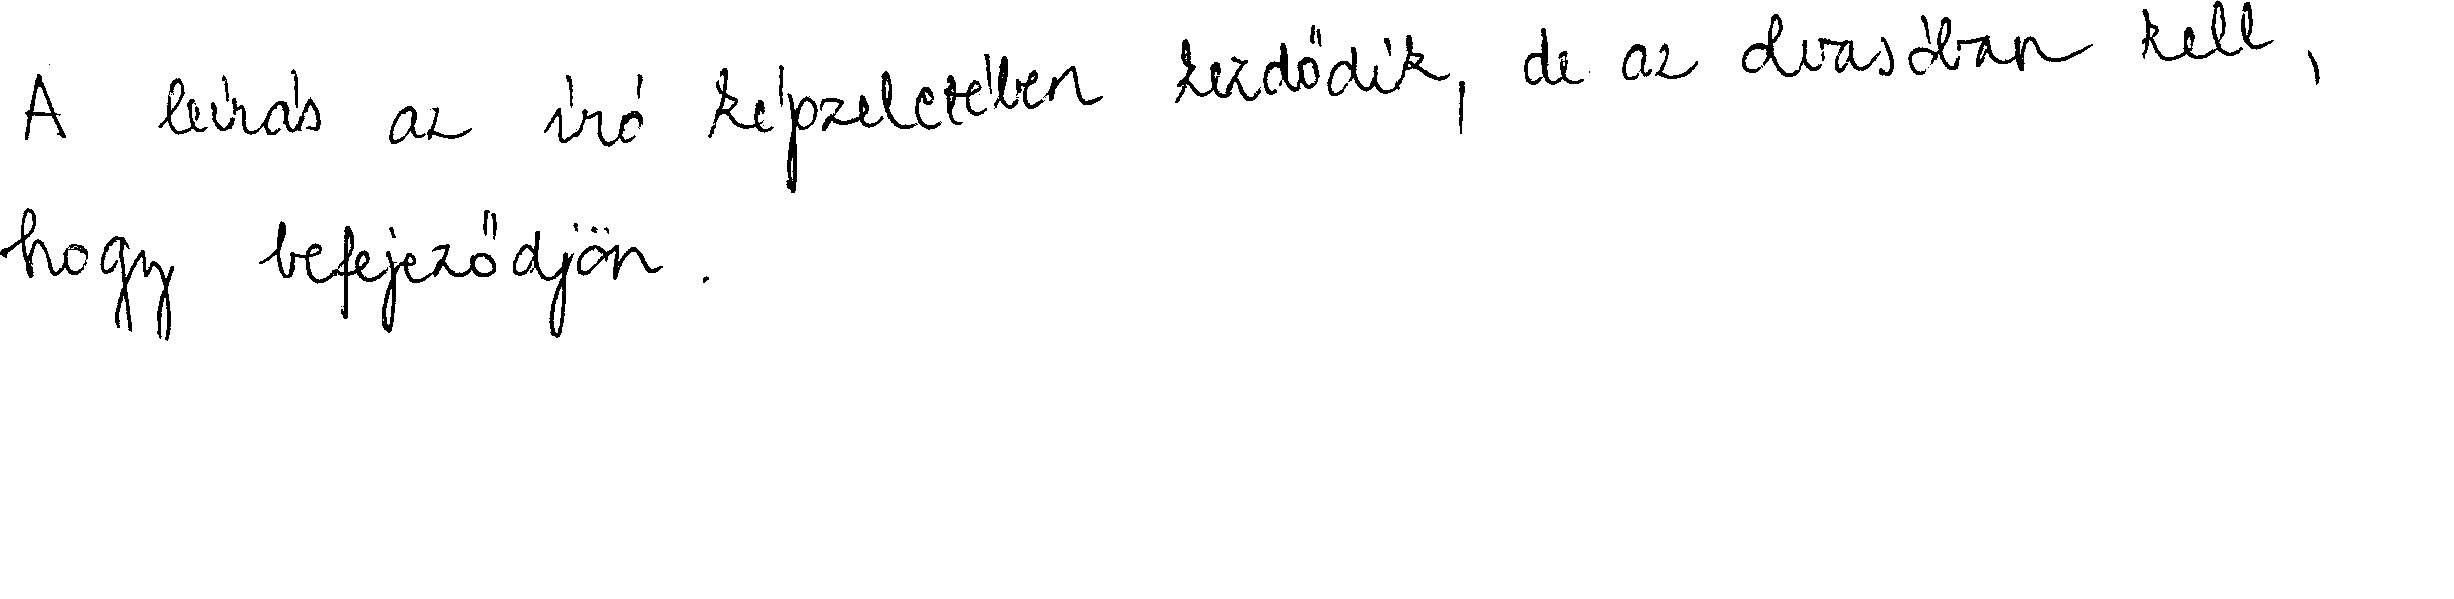 A leírás az író képzeletében kezdődik, de az olvasóban kell,
hogy befejeződjön.